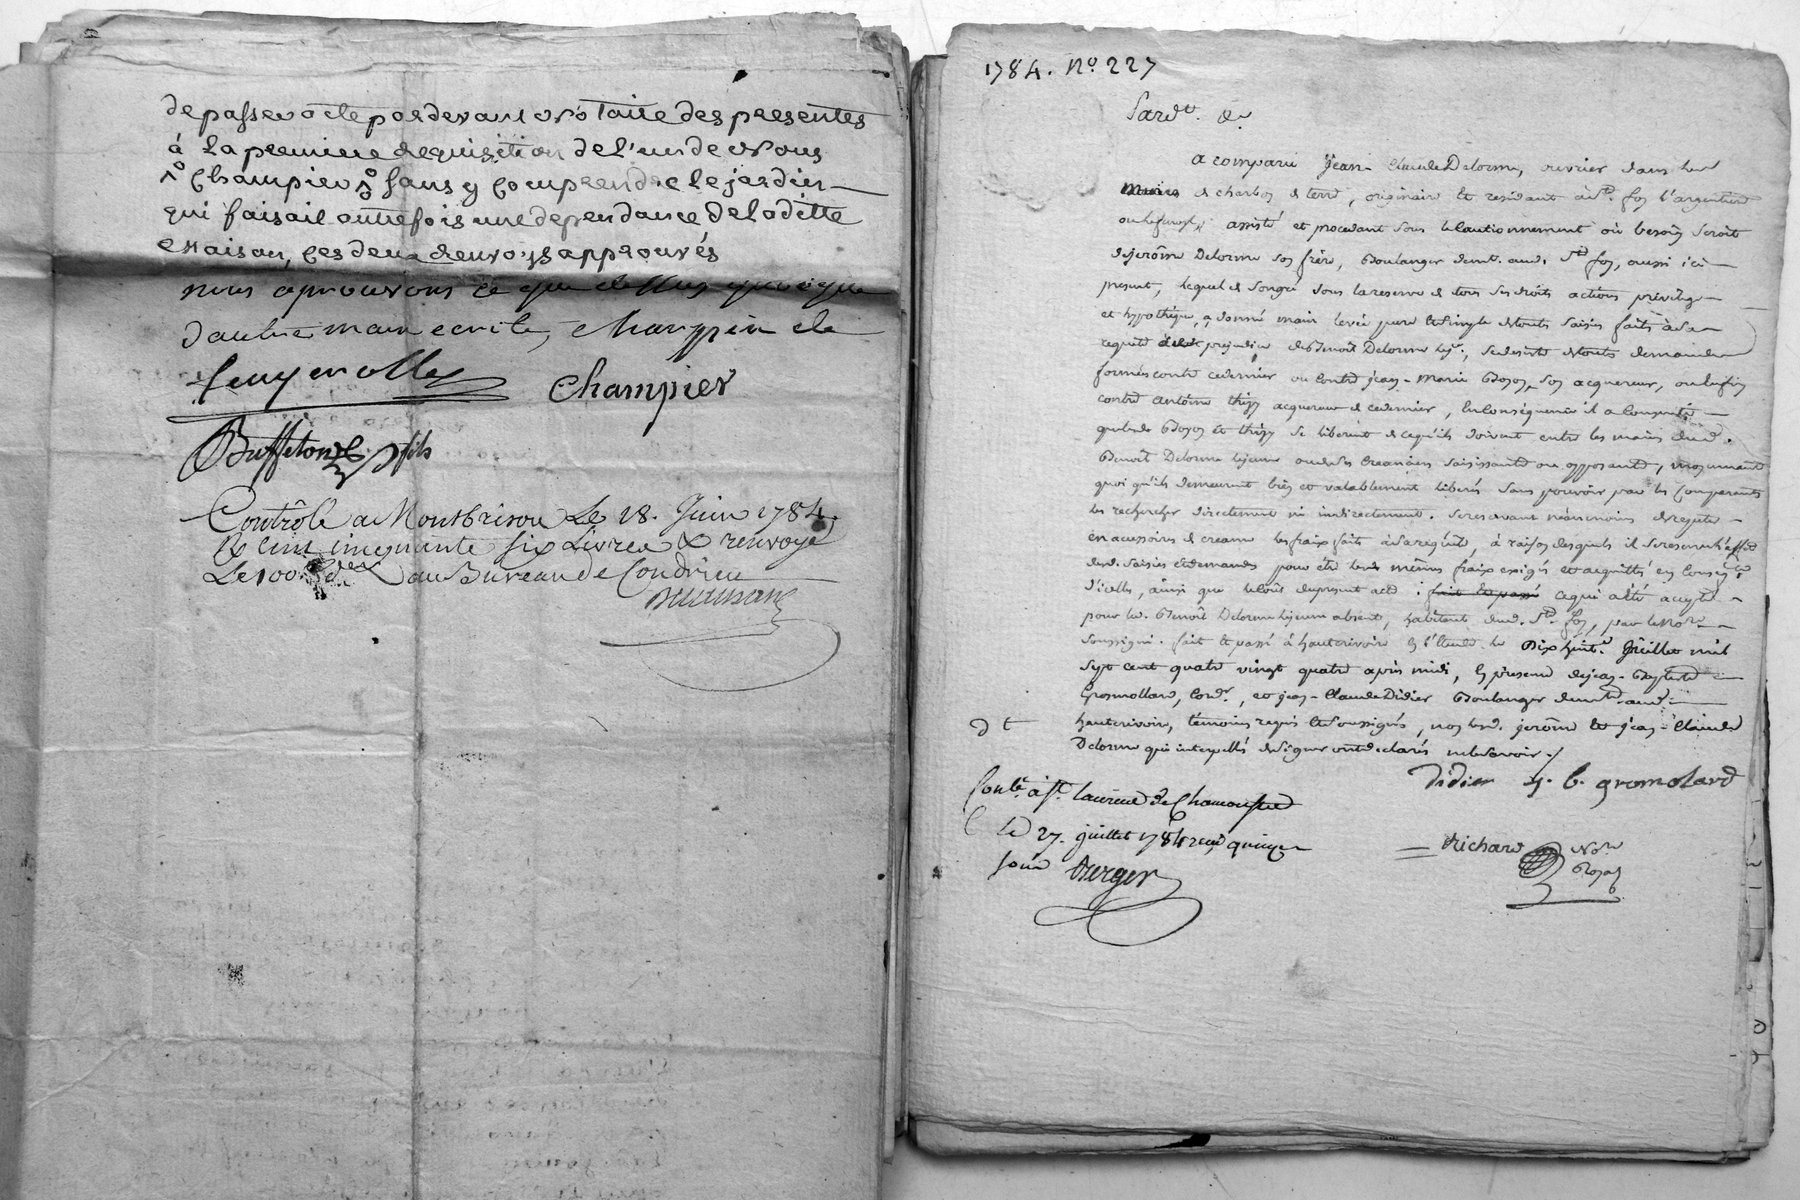 de passer acte pardevant notaire des presentes
á La premiere requisition de l'un de nous
Champier sans y Comprendre le jardin
qui faisait autrefois une dependance de laditte
maison, Ces deux renvoys approuvés
nous aprouvons ce que dessus quoique
d'autre main ecrite, champier
Champier
Buffeton fils
Contrôlé a Montbrison Le 18. Juin 1784.
cent cinquante six Livres & renvoyé
Le 100 au Bureau de Condrieu
1784. No. 227
Pardt. &c
a comparu Jean-Claude Delorme, ouvrier dans les
mines de charbon de terre, originaire et residant à Ste. foy l'argentiere
assisté et procedant sous le cautionnement où besoin seroit
de jerôme Delorme son frère, Boulanger demt. aud. Ste foy, aussi ici
present, lequel de son gré sous la reserve de tous ses droits actions privilege
et hypothèque, a donné main levée pure et simple de toutes saisies faites à sa
requête préjudice de Benoît Delorme lejne., se desiste de toutes demandes
formées contre ce dernier ou contre jean-Marie Boyon son acquereur, ou enfin
contre antoine thizy acquereur de ce dernier, en Conséquence il a consenti
que lesd. Boyon et thizy se liberent de ce qu'ils doivent entre les mains dud.
Benoit Delorme lejeune ou de ses Creanciers saisissants ou opposants, moyennant
quoi qu'ils demeurent bien et valablement liberés sans pouvoir par les Comparants
les rechercher directement ni indirectement. se reservant néanmoins de repeter
en accessoires de creance les fraix faits à sa requête, à raison desquels il se reserve l'effet
desd. saisies et demandes pour être lesd. mêmes fraix exigés et acquittés en Conseqce.
d'icelles, ainsi que le coût du present acte : fait et passé ce qui a été accepté
pour led. Benoît Delorme lejeune absent, habitant dud. Ste. foy, par le Notre.
soussigné. fait et passé à hauterivoire en l'Etude le Dix huit Juillet mil
sept cent quatre vingt quatre après midi, en presence de jean-Baptiste
Grosmollard, Cordr., et jean-Claude Didier Boulanger demts. aud.
hauterivoire, témoins requis et soussignés, non lesd. jerôme et jean-Claude
Delorme qui interpellés de signer ont declarés ne le savoir./
Didier j. b. gromolard
Conlé. à st. laurent de Chamousset
le 27. juillet 1784 reçu quinze
sous Berger
Richard Nore
Royal